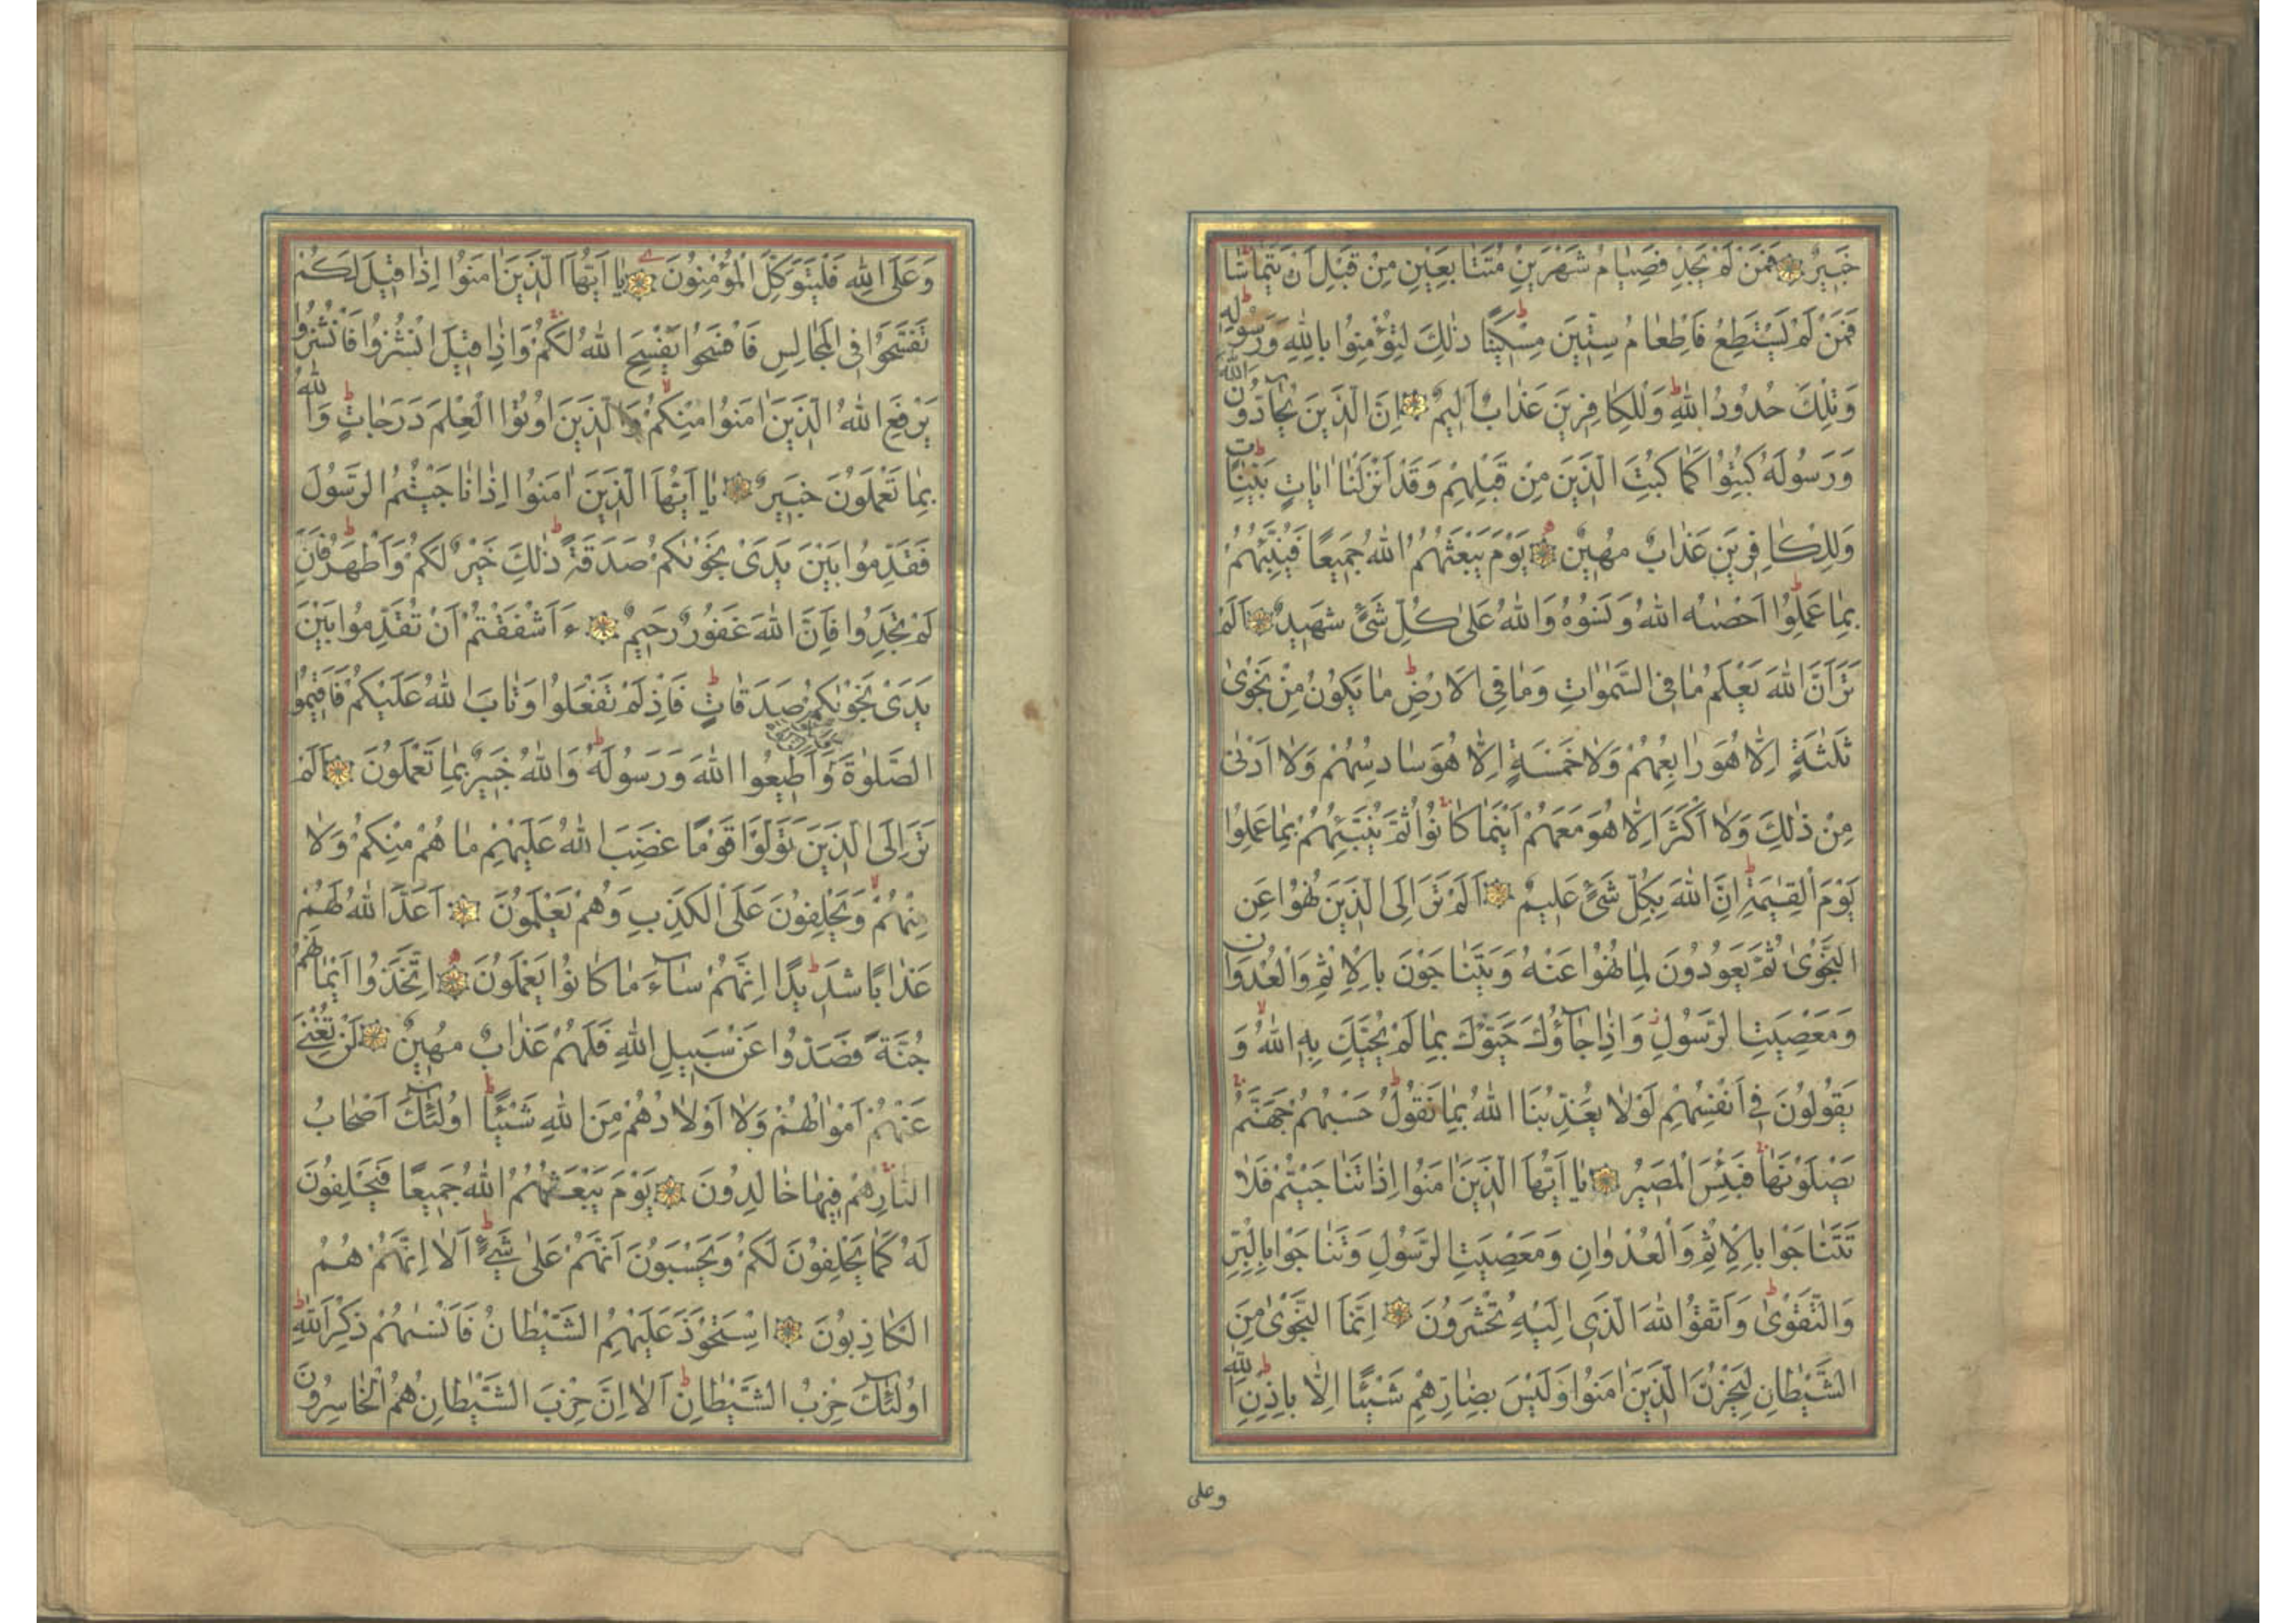 خَبِيرٌ فَمَنْ لَمْ يَجِدْ فَصِيَامُ شَهْرَيْنِ مُتَتَابِعَيْنِ مِنْ قَبْلِ اَنْ يَتَمَاسَّا
فَمَنْ لَمْ يَسْتَطِعْ فَاِطْعَامُ سِتِّينَ مِسْكِينًا ذٰلِكَ لِتُؤْمِنُوا بِاللّٰهِ وَرَسُولِهِ
وَتِلْكَ حُدُودُ اللّٰهِ وَلِلْكَافِرِينَ عَذَابٌ اَلِيمٌ اِنَّ الَّذِينَ يُحَآدُّونَ اللّٰهَ
وَرَسُولَهُ كُبِتُوا كَمَا كُبِتَ الَّذِينَ مِنْ قَبْلِهِمْ وَقَدْ اَنْزَلْنَا اٰيَاتٍ بَيِّنَاتٍ
وَلِلْكَافِرِينَ عَذَابٌ مُهِينٌ يَوْمَ يَبْعَثُهُمُ اللّٰهُ جَمِيعًا فَيُنَبِّئُهُمْ
بِمَا عَمِلُوا اَحْصٰيهُ اللّٰهُ وَنَسُوهُ وَاللّٰهُ عَلٰى كُلِّ شَیْءٍ شَهِيدٌ اَلَمْ
تَرَ اَنَّ اللّٰهَ يَعْلَمُ مَا فِى السَّمٰوَاتِ وَمَا فِى الْاَرْضِ مَا يَكُونُ مِنْ نَجْوٰى
ثَلٰثَةٍ اِلَّا هُوَ رَابِعُهُمْ وَلَا خَمْسَةٍ اِلَّا هُوَ سَادِسُهُمْ وَلَا اَدْنٰى
مِنْ ذٰلِكَ وَلَا اَكْثَرَ اِلَّا هُوَ مَعَهُمْ اَيْنَمَا كَانُوا ثُمَّ يُنَبِّئُهُمْ بِمَا عَمِلُوا
يَوْمَ الْقِيٰمَةِ اِنَّ اللّٰهَ بِكُلِّ شَیْءٍ عَلِيمٌ اَلَمْ تَرَ اِلَى الَّذِينَ نُهُوا عَنِ
النَّجْوٰى ثُمَّ يَعُودُونَ لِمَا نُهُوا عَنْهُ وَيَتَنَاجَوْنَ بِالْاِثْمِ وَالْعُدْوَانِ
وَمَعْصِيَتِ الرَّسُولِ وَاِذَا جَآؤُكَ حَيَّوْكَ بِمَا لَمْ يُحَيِّكَ بِهِ اللّٰهُ وَ
يَقُولُونَ فِى اَنْفُسِهِمْ لَوْلَا يُعَذِّبُنَا اللّٰهُ بِمَا نَقُولُ حَسْبُهُمْ جَهَنَّمُ
يَصْلَوْنَهَا فَبِئْسَ الْمَصِيرُ يَا اَيُّهَا الَّذِينَ اٰمَنُوا اِذَا تَنَاجَيْتُمْ فَلَا
تَتَنَاجَوْا بِالْاِثْمِ وَالْعُدْوَانِ وَمَعْصِيَتِ الرَّسُولِ وَتَنَاجَوْا بِالْبِرِّ
وَالتَّقْوٰى وَاتَّقُوا اللّٰهَ الَّذِى اِلَيْهِ تُحْشَرُونَ اِنَّمَا النَّجْوٰى مِنَ
الشَّيْطَانِ لِيَحْزُنَ الَّذِينَ اٰمَنُوا وَلَيْسَ بِضَارِّهِمْ شَيْئًا اِلَّا بِاِذْنِ اللّٰهِ
وعلى
وَعَلَى اللّٰهِ فَلْيَتَوَكَّلِ الْمُؤْمِنُونَ يَا اَيُّهَا الَّذِينَ اٰمَنُوا اِذَا قِيلَ لَكُمْ
تَفَسَّحُوا فِى الْمَجَالِسِ فَافْسَحُوا يَفْسَحِ اللّٰهُ لَكُمْ وَاِذَا قِيلَ انْشُزُوا فَانْشُزُوا
يَرْفَعِ اللّٰهُ الَّذِينَ اٰمَنُوا مِنْكُمْ وَالَّذِينَ اُوتُوا الْعِلْمَ دَرَجَاتٍ وَاللّٰهُ
بِمَا تَعْمَلُونَ خَبِيرٌ يَا اَيُّهَا الَّذِينَ اٰمَنُوا اِذَا نَاجَيْتُمُ الرَّسُولَ
فَقَدِّمُوا بَيْنَ يَدَىْ نَجْوٰيكُمْ صَدَقَةً ذٰلِكَ خَيْرٌ لَكُمْ وَاَطْهَرُ فَاِنْ
لَمْ تَجِدُوا فَاِنَّ اللّٰهَ غَفُورٌ رَحِيمٌ ءَاَشْفَقْتُمْ اَنْ تُقَدِّمُوا بَيْنَ
يَدَىْ نَجْوٰيكُمْ صَدَقَاتٍ فَاِذْ لَمْ تَفْعَلُوا وَتَابَ اللّٰهُ عَلَيْكُمْ فَاَقِيمُوا
الصَّلٰوةَ وَاَطِيعُوا اللّٰهَ وَرَسُولَهُ وَاللّٰهُ خَبِيرٌ بِمَا تَعْمَلُونَ اَلَمْ
تَرَ اِلَى الَّذِينَ تَوَلَّوْا قَوْمًا غَضِبَ اللّٰهُ عَلَيْهِمْ مَا هُمْ مِنْكُمْ وَلَا
مِنْهُمْ وَيَحْلِفُونَ عَلَى الْكَذِبِ وَهُمْ يَعْلَمُونَ اَعَدَّ اللّٰهُ لَهُمْ
عَذَابًا شَدِيدًا اِنَّهُمْ سَآءَ مَا كَانُوا يَعْمَلُونَ اِتَّخَذُوا اَيْمَانَهُمْ
جُنَّةً فَصَدُّوا عَنْ سَبِيلِ اللّٰهِ فَلَهُمْ عَذَابٌ مُهِينٌ لَنْ تُغْنِىَ
عَنْهُمْ اَمْوَالُهُمْ وَلَا اَوْلَادُهُمْ مِنَ اللّٰهِ شَيْئًا اُولٰٓئِكَ اَصْحَابُ
النَّارِ هُمْ فِيهَا خَالِدُونَ يَوْمَ يَبْعَثُهُمُ اللّٰهُ جَمِيعًا فَيَحْلِفُونَ
لَهُ كَمَا يَحْلِفُونَ لَكُمْ وَيَحْسَبُونَ اَنَّهُمْ عَلٰى شَیْءٍ اَلَا اِنَّهُمْ هُمُ
الْكَاذِبُونَ اِسْتَحْوَذَ عَلَيْهِمُ الشَّيْطَانُ فَاَنْسٰيهُمْ ذِكْرَ اللّٰهِ
اُولٰٓئِكَ حِزْبُ الشَّيْطَانِ اَلَا اِنَّ حِزْبَ الشَّيْطَانِ هُمُ الْخَاسِرُونَ